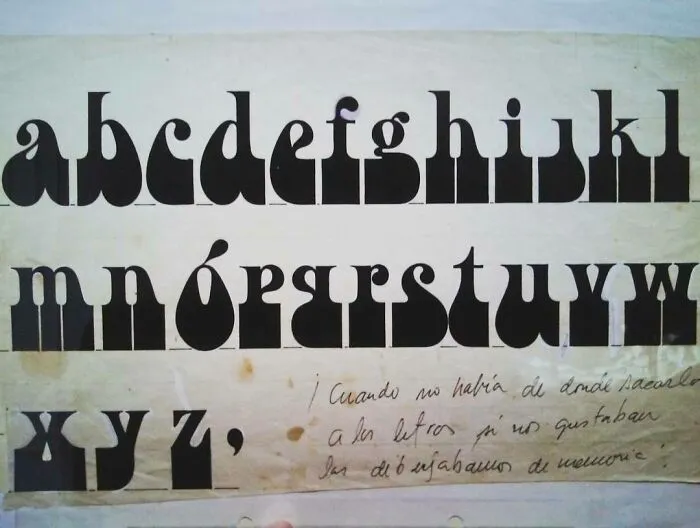 abcdefghijkl
mnópqrstuvw
xyz,
¡Cuando no había de donde sacarla
a las letras si nos gustaban
las dibujabamos de memoria!